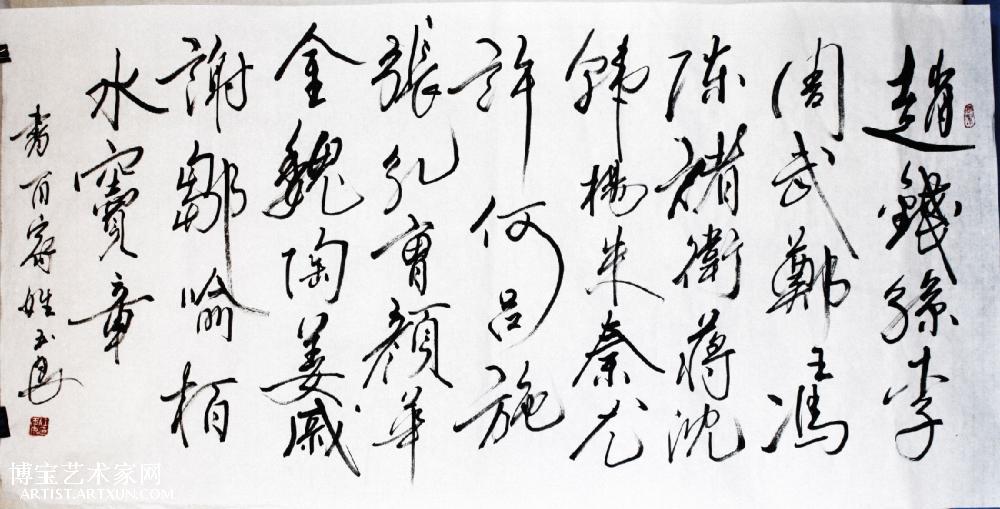 趙錢孫李
周武鄭王馮
陳褚衛蔣沈
韓楊朱秦尤
許何呂施
張孔曹顏華
金魏陶姜戚
謝鄒喻柏
水竇章
書百家姓玉
博宝艺术家网
ARTIST.ARTXUN.COM